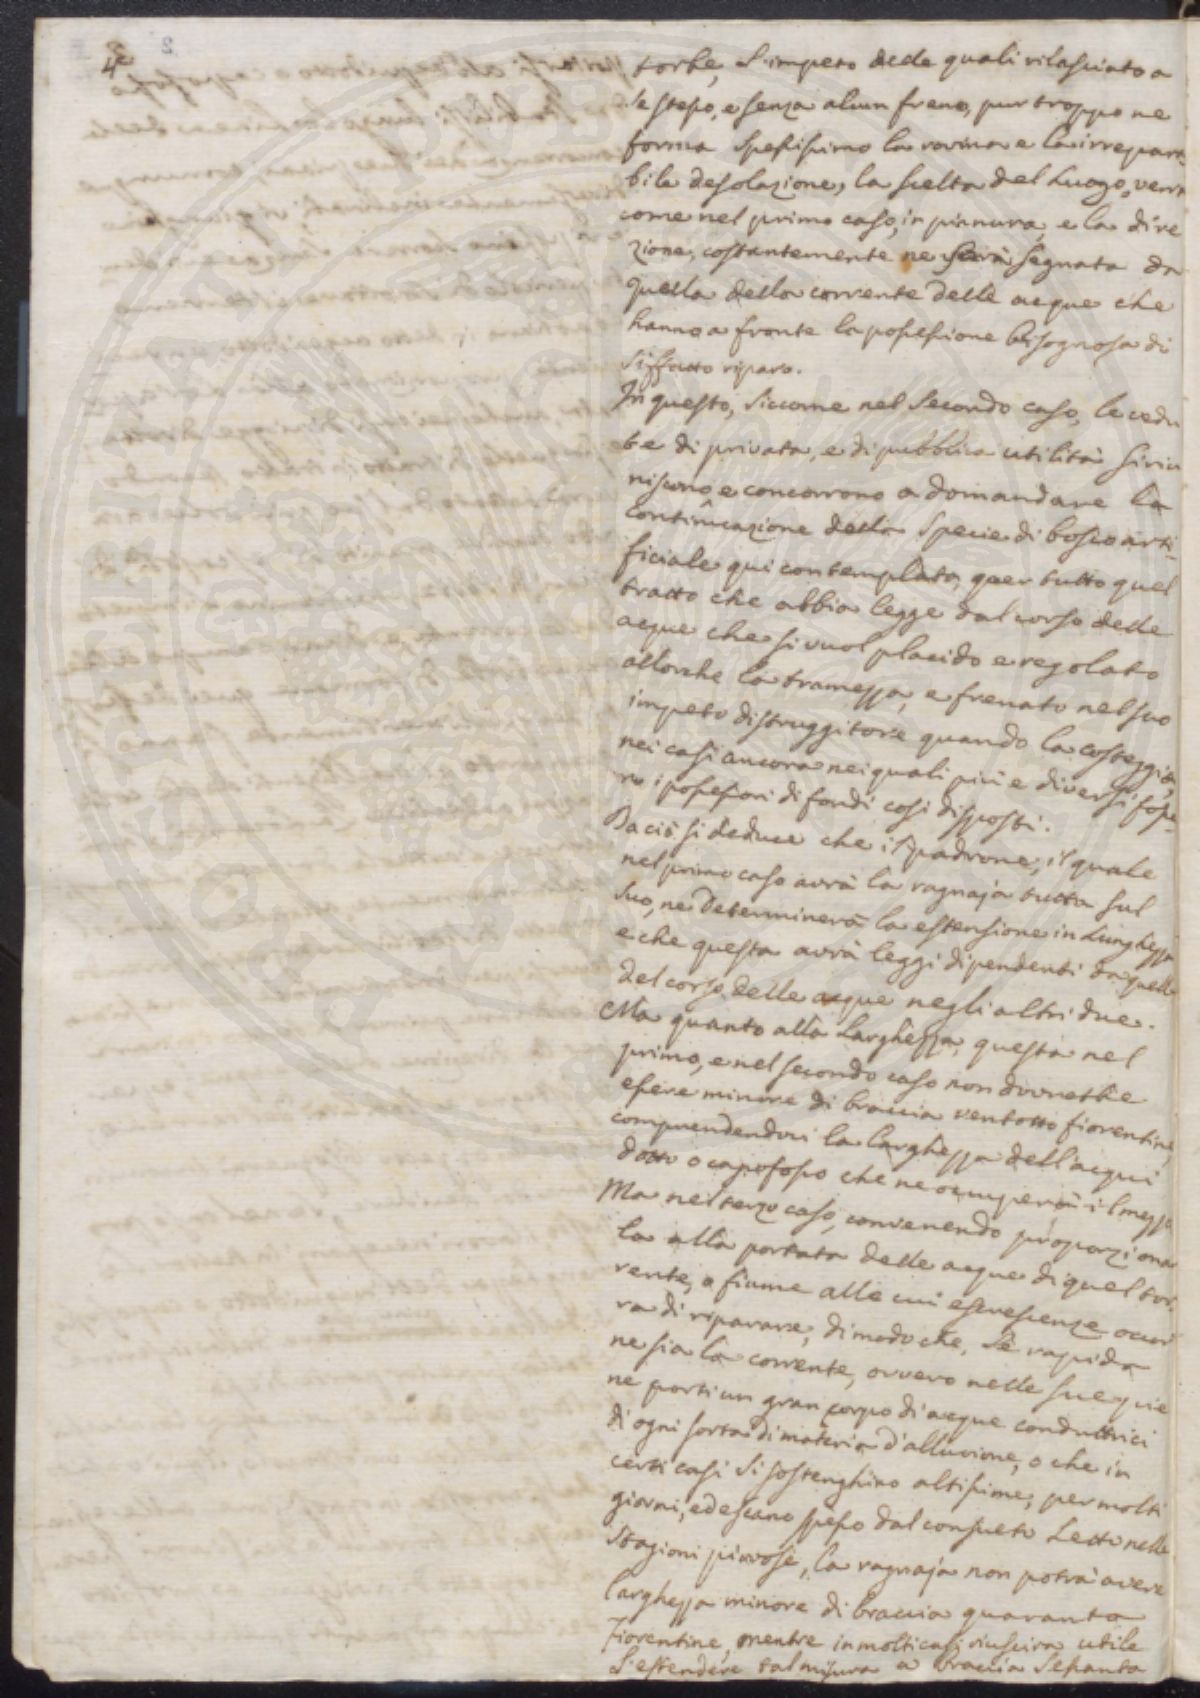 torbe, l'impeto delle quali rilasciato a
se stesso, e senza alcun freno, pur troppo ne
forma spessissimo la rovina e la irrepara-
bile desolazione, la scelta del Luogo, verrà
come nel primo caso, in pianura, e la dire
zione, costantemente ne sarà segnata da
quella della corrente delle acque che
hanno a fronte la possessione bisognosa di
siffatto riparo.
In questo, siccome nel secondo caso, le vedu
te di privata, e di pubblica utilità si riu
niscono e concorrono a domandare la
continuazione della specie di bosco arti-
ficiale qui contemplato, per tutto quel
tratto che abbia legge dal corso delle
acque che si vuol placido e regolato
allorche la tramezza, e frenato nel suo
impeto distruggitore quando la costeggia,
nei casi ancora nei quali più e diversi fosse-
ro i possessori di fondi così disposti.
Da ciò si deduce che il padrone, il quale
nel primo caso avrà la ragnaja tutta sul
suo, ne determinerà la estensione in Lunghezza
e che questa avrà leggi dipendenti da quelle
del corso delle acque negli altri due.
Ma quanto alla Larghezza, questa nel
primo, e nel secondo caso non dovrebbe
essere minore di braccia ventotto fiorentine,
comprendendovi la larghezza dell'acqui
dotto o capofosso che ne occuperà il mezzo
Ma nel terzo caso, convenendo proporziona
la alla portata delle acque di quel tor-
rente, o fiume alle cui escrescenze occor
ra di riparare, di modo che, se rapida
ne sia la corrente, ovvero nelle sue pie
ne porti un gran corpo di acque conduttrici
di ogni sorta di materia d'alluvione, o che in
certi casi si sostenghino altissime, per molti
giorni, ed escano spesso dal consueto Letto nelle
stagioni piovose, la ragnaja non potrà avere
larghezza minore di braccia quaranta
Fiorentine, mentre in molti casi riuscirà utile
l'estendere tal misura a braccia sessanta